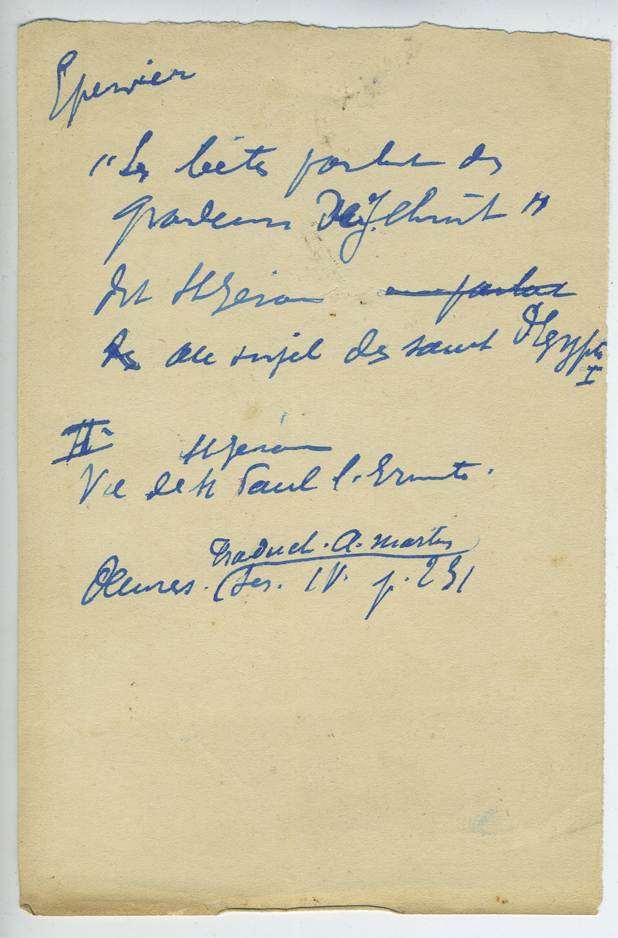 Epervier
"Les bêtes parlent des
grandeurs de J. Christ"
dit St Jérôme en parlant
au sujet des saints d'Egypte
I
II
St Jérôme
Vie de St Paul l'Ermite.
Traduct. A. Martin
Oeuvres. IV. p. 231